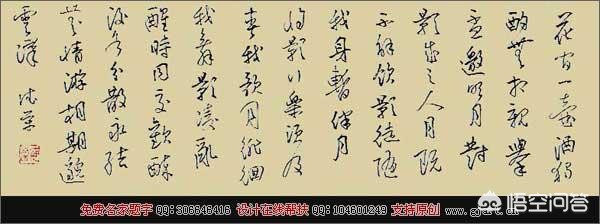 花間一壺酒獨
酌無相親舉
盃邀明月對
影成三人月既
不解飲影徒隨
我身暫伴月
將影行樂須及
春我歌月徘徊
我舞影凌亂
醒時同交歡醉
後各分散永結
無情遊相期邈
雲漢
免费名家题字 QQ:306646416 设计在线帮扶 QQ:104601249 支持原创
悟空问答